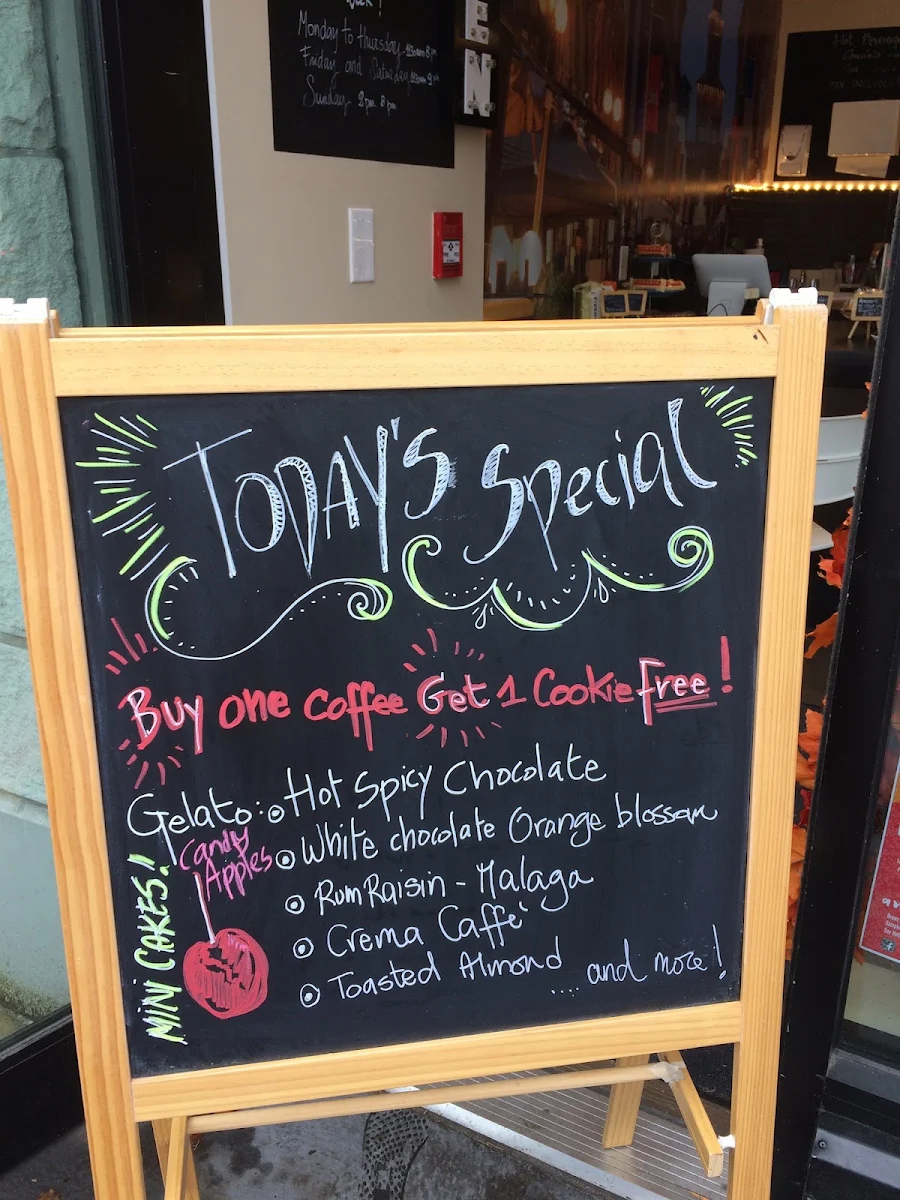 Monday to thursday
Friday and Saturday
Sunday 2pm 8pm
E
N
Hot Beverage
TODAY'S Special
Buy one coffee Get 1 Cookie free!
Gelato: Hot Spicy Chocolate
White chocolate Orange blossom
Rum Raisin - Malaga
Crema Caffè
Toasted Almond
.... and more!
Candy
Apples
MiNi CAKES!